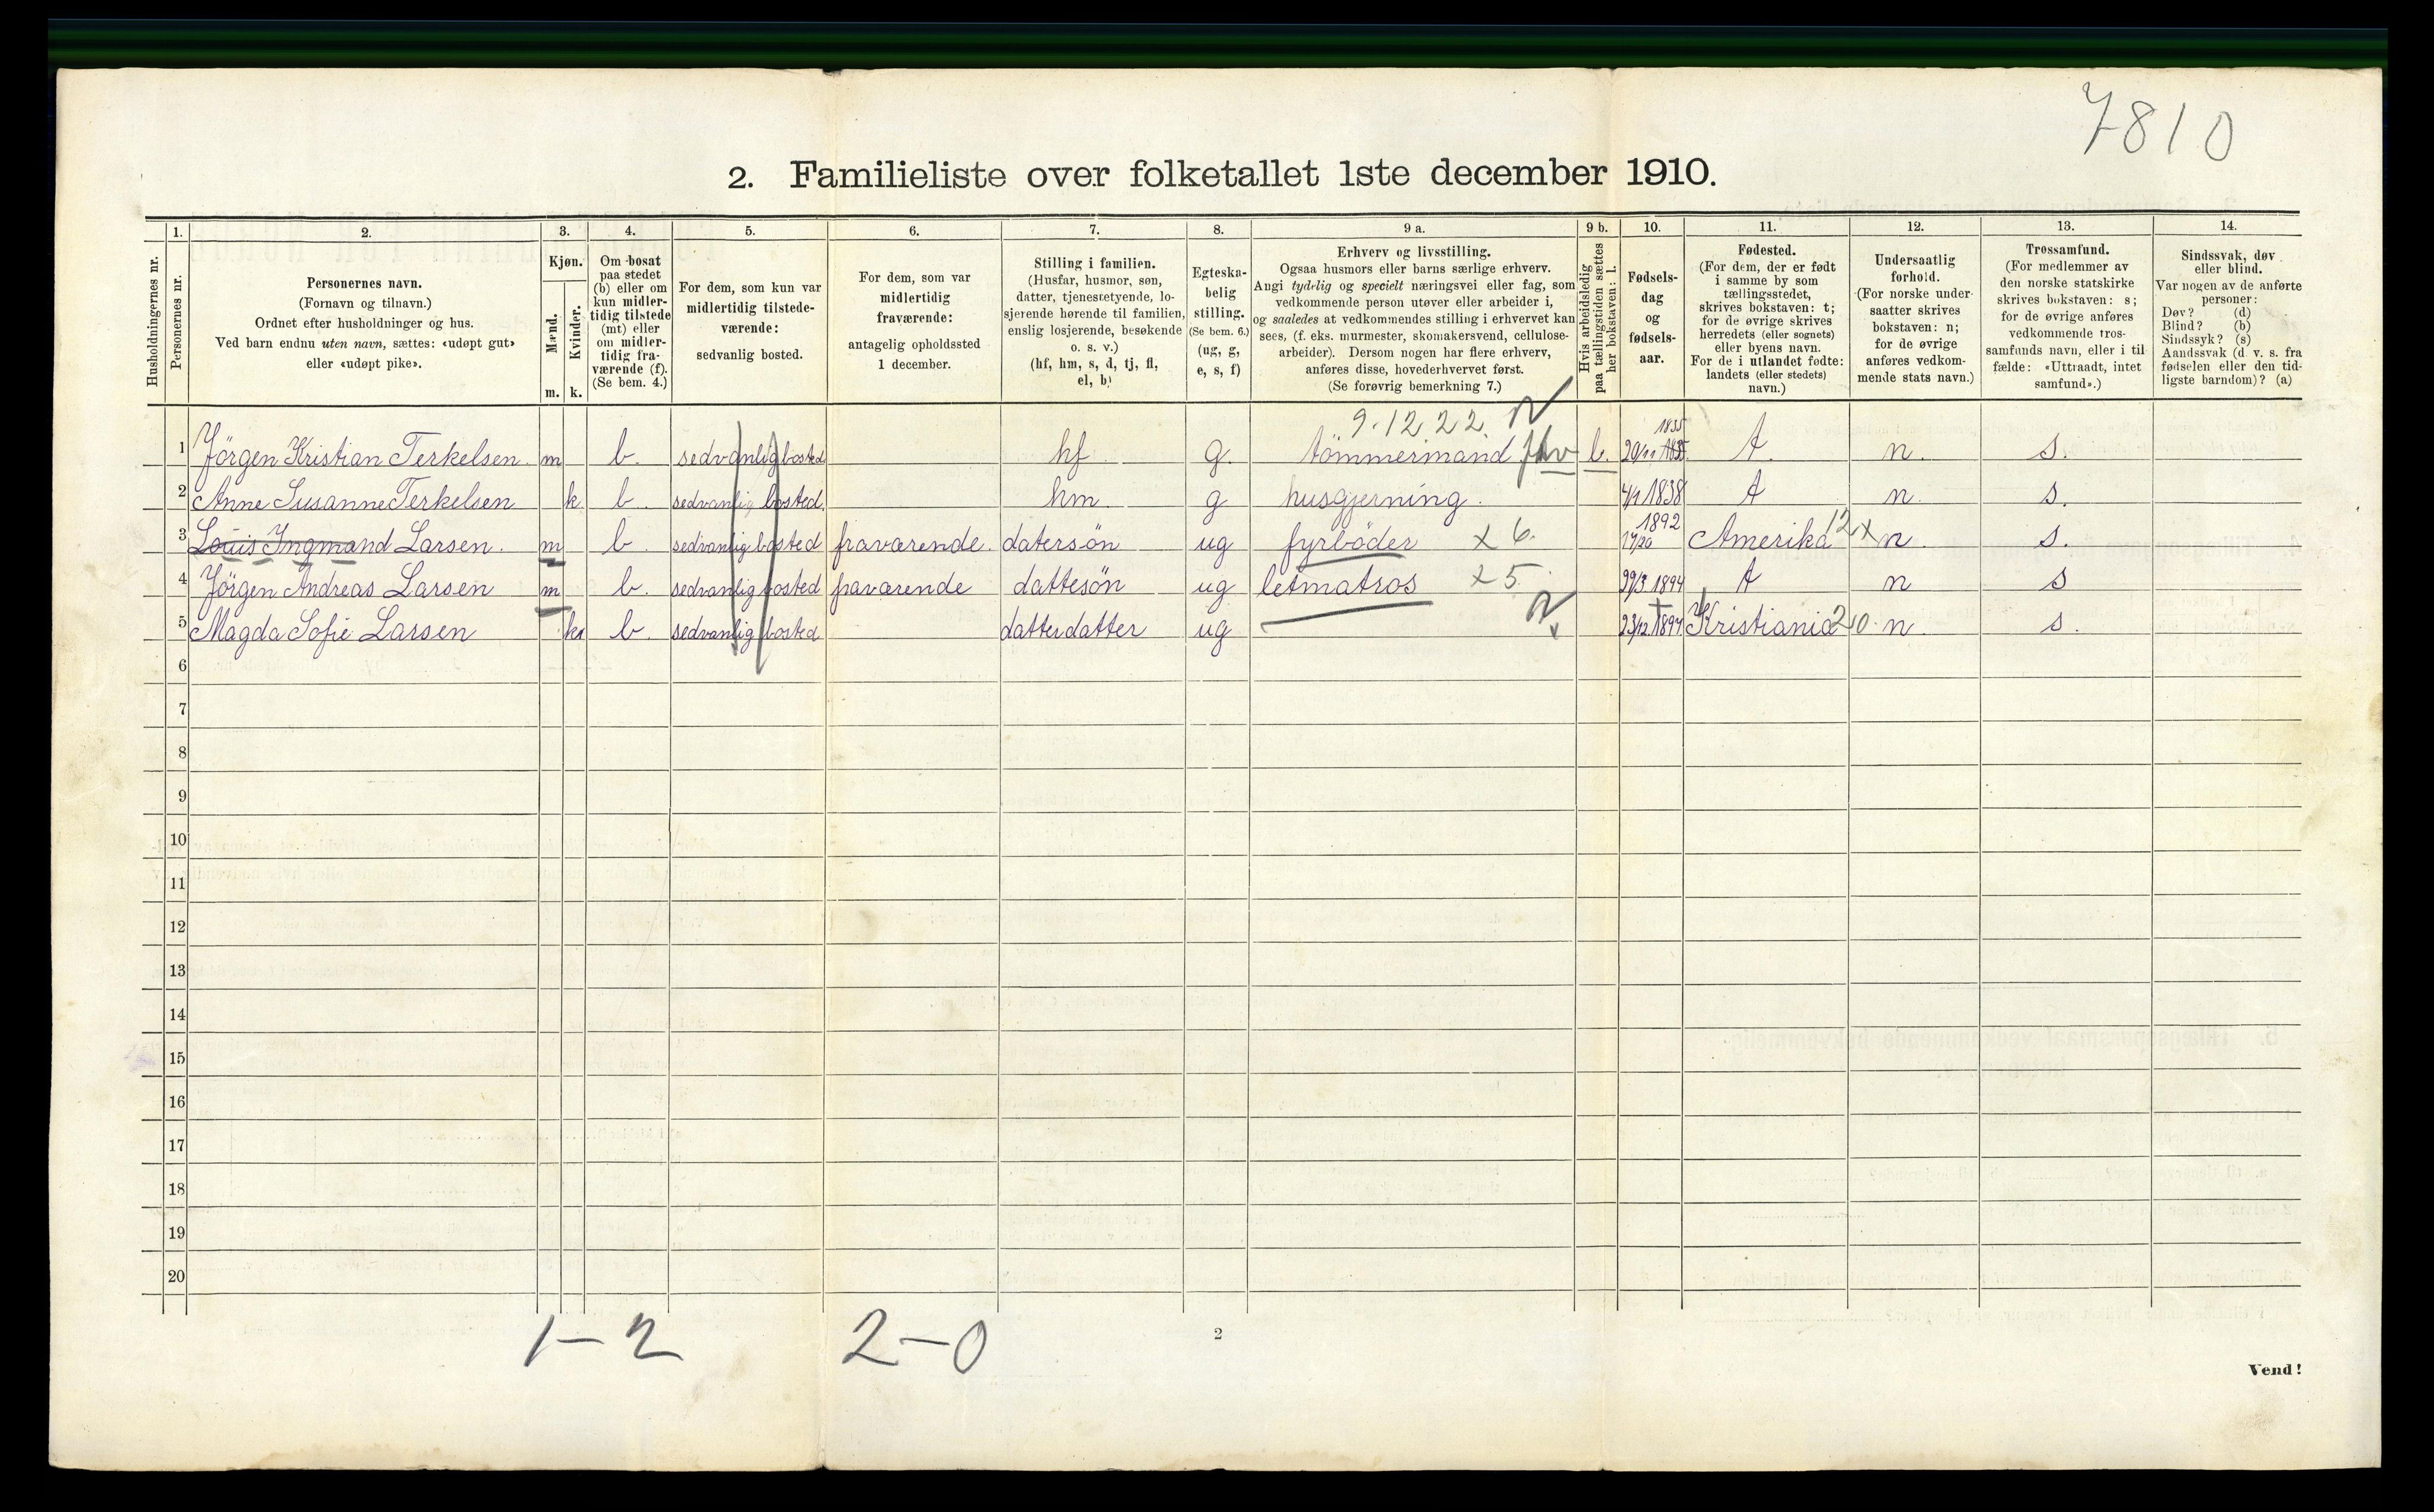 7810
2. Familieliste over folketallet 1ste december 1910.
1. 2. 3. 4. 5. 6. 7. 8. 9 a. 9 b. 10. 11. 12. 13. 14.
Husholdningernes nr.
Personernes nr.
Personernes navn.
(Fornavn og tilnavn.)
Ordnet efter husholdninger og hus.
Ved barn endnu uten navn, sættes: «udøpt gut»
eller «udøpt pike».
Kjøn.
Mænd.
Kvinder.
m. k.
Om bosat
paa stedet
(b) eller om
kun midler-
tidig tilstede
(mt) eller
om midler-
tidig fra-
værende (f).
(Se bem. 4.)
For dem, som kun var
midlertidig tilstede-
værende:
sedvanlig bosted.
For dem, som var
midlertidig
fraværende:
antagelig opholdssted
1 december.
Stilling i familien.
(Husfar, husmor, søn,
datter, tjenestetyende, lo-
sjerende hørende til familien,
enslig losjerende, besøkende
o. s. v.)
(hf, hm, s, d, tj, fl,
el, b)
Egteska-
belig
stilling.
(Se bem. 6.)
(ug, g,
e, s, f)
Erhverv og livsstilling.
Ogsaa husmors eller barns særlige erhverv.
Angi tydelig og specielt næringsvei eller fag, som
vedkommende person utøver eller arbeider i,
og saaledes at vedkommendes stilling i erhvervet kan
sees, (f. eks. murmester, skomakersvend, cellulose-
arbeider). Dersom nogen har flere erhverv,
anføres disse, hovederhvervet først.
(Se forøvrig bemerkning 7.)
Hvis arbeidsledig
paa tællingstiden sættes
her bokstaven: l.
Fødsels-
dag
og
fødsels-
aar.
Fødested.
(For dem, der er født
i samme by som
tællingsstedet,
skrives bokstaven: t;
for de øvrige skrives
herredets (eller sognets)
eller byens navn.
For de i utlandet fødte:
landets (eller stedets)
navn.)
Undersaatlig
forhold.
(For norske under-
saatter skrives
bokstaven: n;
for de øvrige
anføres vedkom-
mende stats navn.)
Trossamfund.
(For medlemmer av
den norske statskirke
skrives bokstaven: s;
for de øvrige anføres
vedkommende tros-
samfunds navn, eller i til-
fælde: «Uttraadt, intet
samfund».)
Sindssvak, døv
eller blind.
Var nogen av de anførte
personer:
Døv? (d)
Blind? (b)
Sindssyk? (s)
Aandssvak (d. v. s. fra
fødselen eller den tid-
ligste barndom)? (a)
9.12.22.
1835
1 Jörgen Kristian Terkelsen. m b. sedvanlig bosted hf g. tömmermand l. 20/11 t n. s.
2 Anne Susanne Terkelsen k. b sedvanlig bosted. hm g husgjerning. 4/1 1838 t n s.
1892
3 Louis Ingmand Larsen. m b sedvanlig bosted fraværende. datersön ug fyrböder x 6. Amerika 12 x n. s.
4 Jörgen Andreas Larsen m b. sedvanlig bosted fraværende dattesön ug letmatros x 5. 29/3 1894 t n s
5 Magda Sofie Larsen k b. sedvanlig bosted datterdatter ug 23/12 1897. Kristiania 20. n. s.
6
7
8
9
10
11
12
13
14
15
16
17
18
19
20
1-2 2-0
2
Vend!